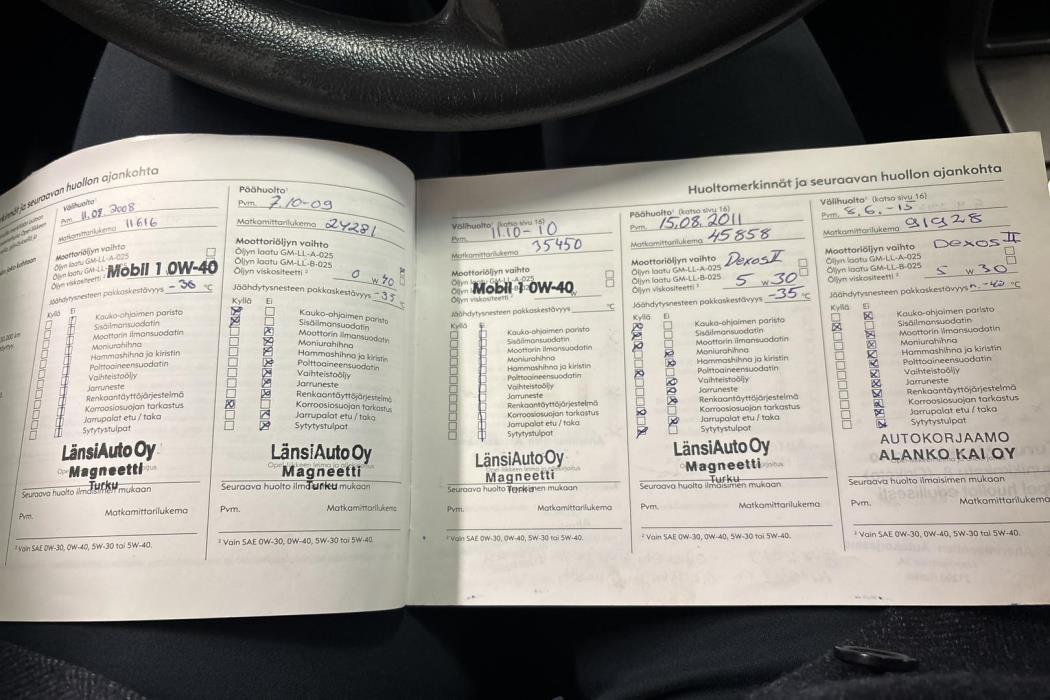 merkinnät ja seuraavan huollon ajankohta
Välihuolto¹
Pvm. 11.09.2008
Matkamittarilukema 11616
Moottoriöljyn vaihto
Öljyn laatu GM-LL-A-025
Öljyn laatu GM-LL
Mobil 1 0W-40
Öljyn viskositeetti
Jäähdytysnesteen pakkaskestävyys -36 °C
Kyllä Ei
Kauko-ohjaimen paristo
Sisäilmansuodatin
Moottorin ilmansuodatin
Moniurahihna
Hammashihna ja kiristin
Polttoaineensuodatin
Vaihteistoöljy
Jarruneste
Renkaantäyttöjärjestelmä
Korroosiosuojan tarkastus
Jarrupalat etu / taka
Sytytystulpat
LänsiAuto Oy
Magneetti
Turku
Seuraava huolto ilmaisimen mukaan
Pvm. Matkamittarilukema
² Vain SAE 0W-30, 0W-40, 5W-30 tai 5W-40.
Päähuolto¹
Pvm. 7.10-09
Matkamittarilukema 24281
Moottoriöljyn vaihto
Öljyn laatu GM-LL-A-025
Öljyn laatu GM-LL-B-025
Öljyn viskositeetti ² 0 W 40
Jäähdytysnesteen pakkaskestävyys -35 °C
Kyllä Ei
Kauko-ohjaimen paristo
Sisäilmansuodatin
Moottorin ilmansuodatin
Moniurahihna
Hammashihna ja kiristin
Polttoaineensuodatin
Vaihteistoöljy
Jarruneste
Renkaantäyttöjärjestelmä
Korroosiosuojan tarkastus
Jarrupalat etu / taka
Sytytystulpat
LänsiAuto Oy
Magneetti
Turku
Seuraava huolto ilmaisimen mukaan
Pvm. Matkamittarilukema
² Vain SAE 0W-30, 0W-40, 5W-30 tai 5W-40.
Huoltomerkinnät ja seuraavan huollon ajankohta
Välihuolto¹ (katso sivu 16)
Pvm. 11.10-10
Matkamittarilukema 35450
Moottoriöljyn vaihto
Mobil 1 0W-40
Jäähdytysnesteen pakkaskestävyys °C
Kyllä Ei
Kauko-ohjaimen paristo
Sisäilmansuodatin
Moottorin ilmansuodatin
Moniurahihna
Hammashihna ja kiristin
Polttoaineensuodatin
Vaihteistoöljy
Jarruneste
Renkaantäyttöjärjestelmä
Korroosiosuojan tarkastus
Jarrupalat etu / taka
Sytytystulpat
LänsiAuto Oy
Magneetti
Turku
Seuraava huolto ilmaisimen mukaan
Pvm. Matkamittarilukema
² Vain SAE 0W-30, 0W-40, 5W-30 tai 5W-40.
Päähuolto¹ (katso sivu 16)
Pvm. 15.08.2011
Matkamittarilukema 45858
Moottoriöljyn vaihto
Öljyn laatu GM-LL-A-025 Dexos II
Öljyn laatu GM-LL-B-025
Öljyn viskositeetti ² 5 W 30
Jäähdytysnesteen pakkaskestävyys -35 °C
Kyllä Ei
Kauko-ohjaimen paristo
Sisäilmansuodatin
Moottorin ilmansuodatin
Moniurahihna
Hammashihna ja kiristin
Polttoaineensuodatin
Vaihteistoöljy
Jarruneste
Renkaantäyttöjärjestelmä
Korroosiosuojan tarkastus
Jarrupalat etu / taka
Sytytystulpat
LänsiAuto Oy
Magneetti
Turku
Seuraava huolto ilmaisimen mukaan
Pvm. Matkamittarilukema
² Vain SAE 0W-30, 0W-40, 5W-30 tai 5W-40.
Välihuolto¹ (katso sivu 16)
Pvm. 8.6.-15
Matkamittarilukema 91928
Moottoriöljyn vaihto Dexos II
Öljyn laatu GM-LL-A-025
Öljyn laatu GM-LL-B-025
Öljyn viskositeetti ² 5 W 30
Jäähdytysnesteen pakkaskestävyys n. -40 °C
Kyllä Ei
Kauko-ohjaimen paristo
Sisäilmansuodatin
Moottorin ilmansuodatin
Moniurahihna
Hammashihna ja kiristin
Polttoaineensuodatin
Vaihteistoöljy
Jarruneste
Renkaantäyttöjärjestelmä
Korroosiosuojan tarkastus
Jarrupalat etu / taka
Sytytystulpat
AUTOKORJAAMO
ALANKO KAI OY
Seuraava huolto ilmaisimen mukaan
Pvm. Matkamittarilukema
² Vain SAE 0W-30, 0W-40, 5W-30 tai 5W-40.